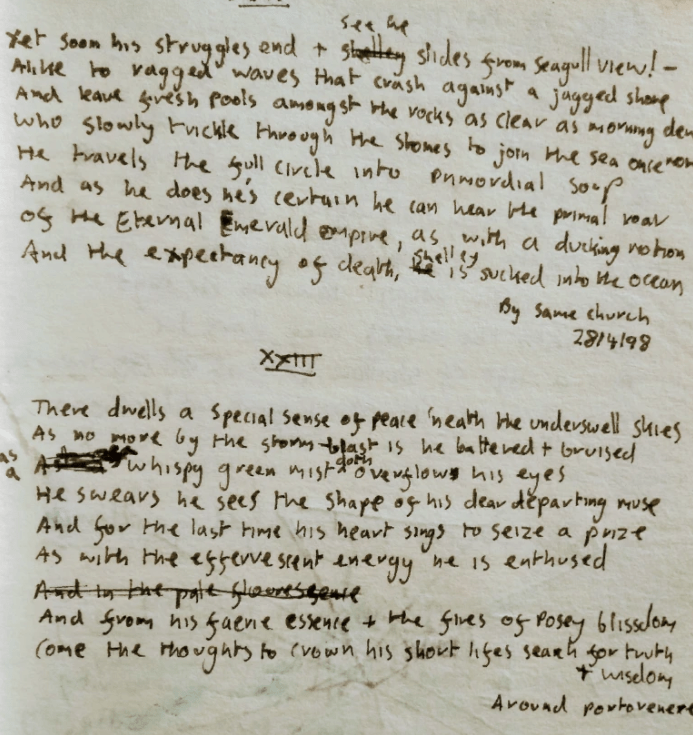 see he
Yet soon his struggles end + shelley slides from seagull view! -
Alike to ragged waves that crash against a jagged shore
And leave fresh pools amongst the rocks as clear as morning dew
Who slowly trickle through the stones to join the sea once more
He travels the full circle into primordial soup
And as he does he's certain he can hear the primal roar
Of the Eternal Emerald empire, as with a ducking motion
And the expectancy of death, he shelley is sucked into the ocean
By same church
28/4/98
XXIII
There dwells a special sense of peace 'neath the underswell skies
As no more by the storm blast is he battered + bruised
as a whispy green mist doth overflow his eyes
He swears he sees the shape of his dear departing muse
And for the last time his heart sings to seize a prize
As with the effervescent energy he is enthused
And in the pale flourescence
And from his faerie essence + the fires of Posey blissdom
Come the thoughts to crown his short lifes search for truth
+ wisdom
Around portovenere